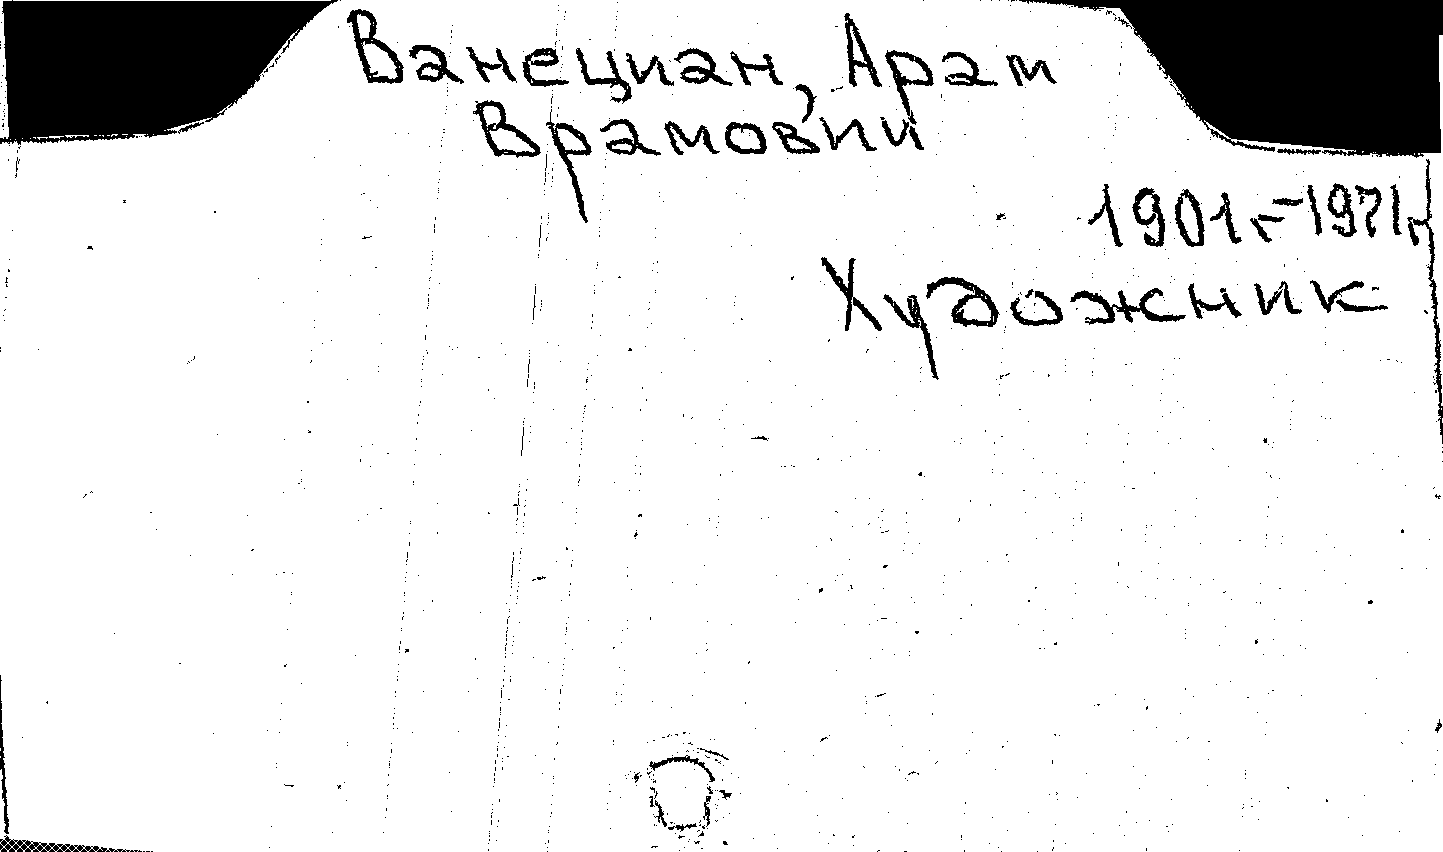 Ванециан, Арам
Врамовии
1901г.-1971г.
Художник